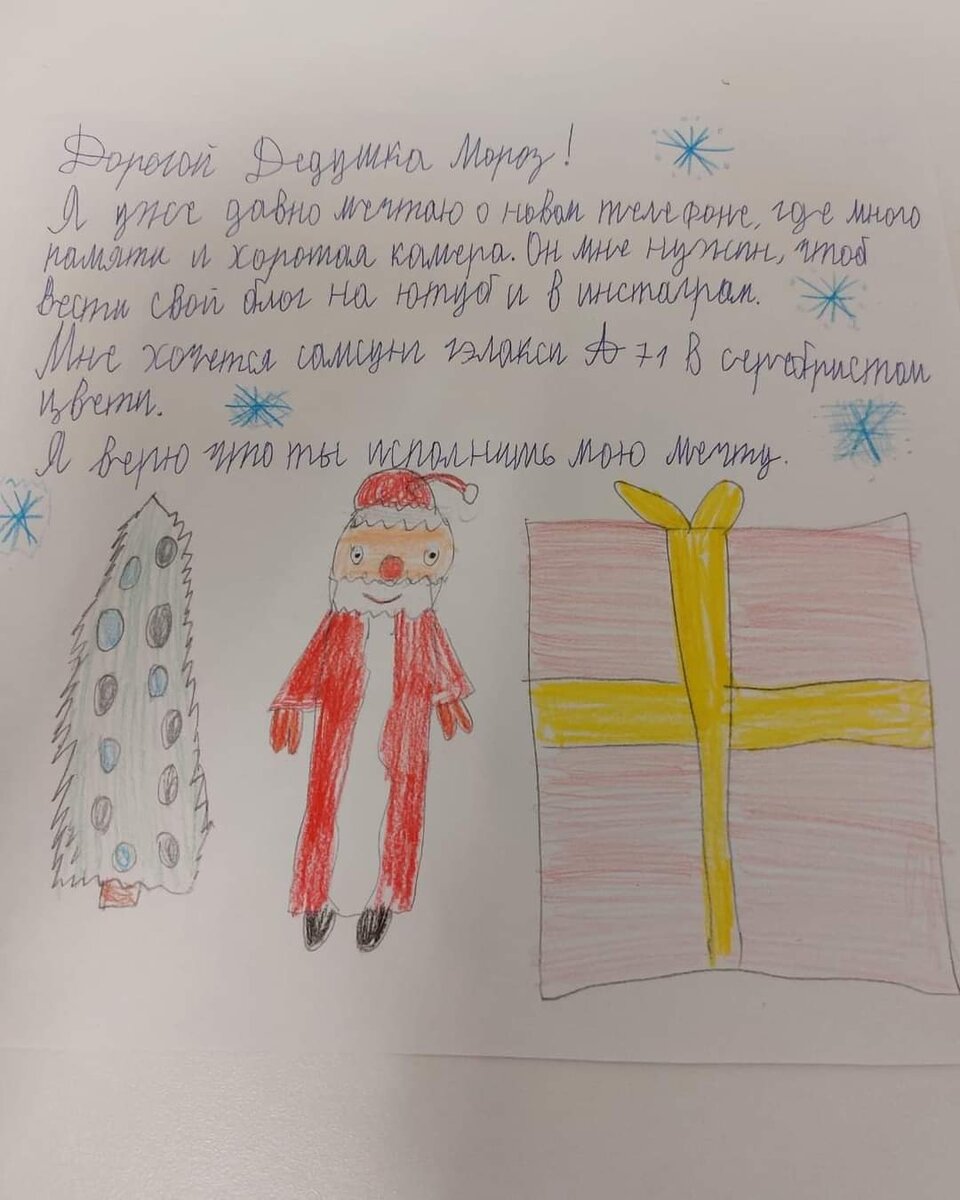 Дорогой Дедушка Мороз!
Я уже давно мечтаю о новом телефоне, где много
памяти и хоротая камера. Он мне нужен, чтоб
вести свой блог на ютуб и в инстаграм.
Мне хочется самсунг гэлакси А 71 в серебристом
цвети.
Я верю что ты исполнишь мою мечту.